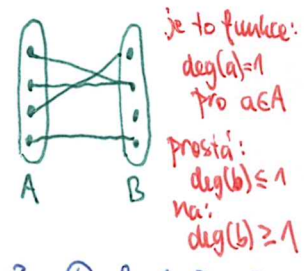 je to funkce:
deg(a)=1
pro a∈A
prostá:
deg(b)≤1
na:
deg(b)≥1
A B